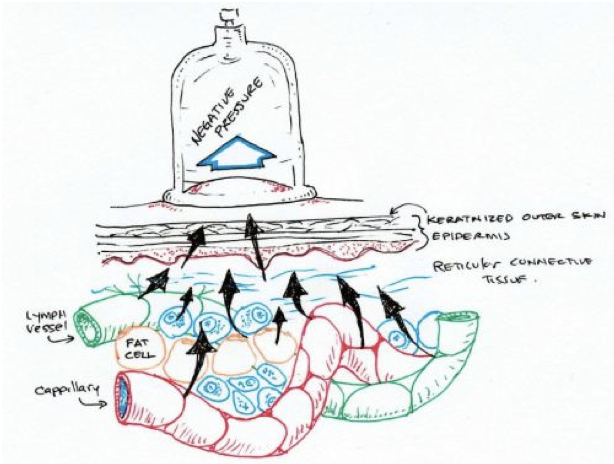 NEGATIVE
PRESSURE
KERATNIZED OUTER SKIN
EPIDERMIS
RETICULAR CONNECTIVE
TISSUE.
LYMPH
VESSEL
FAT
CELL
CAPPILLARY